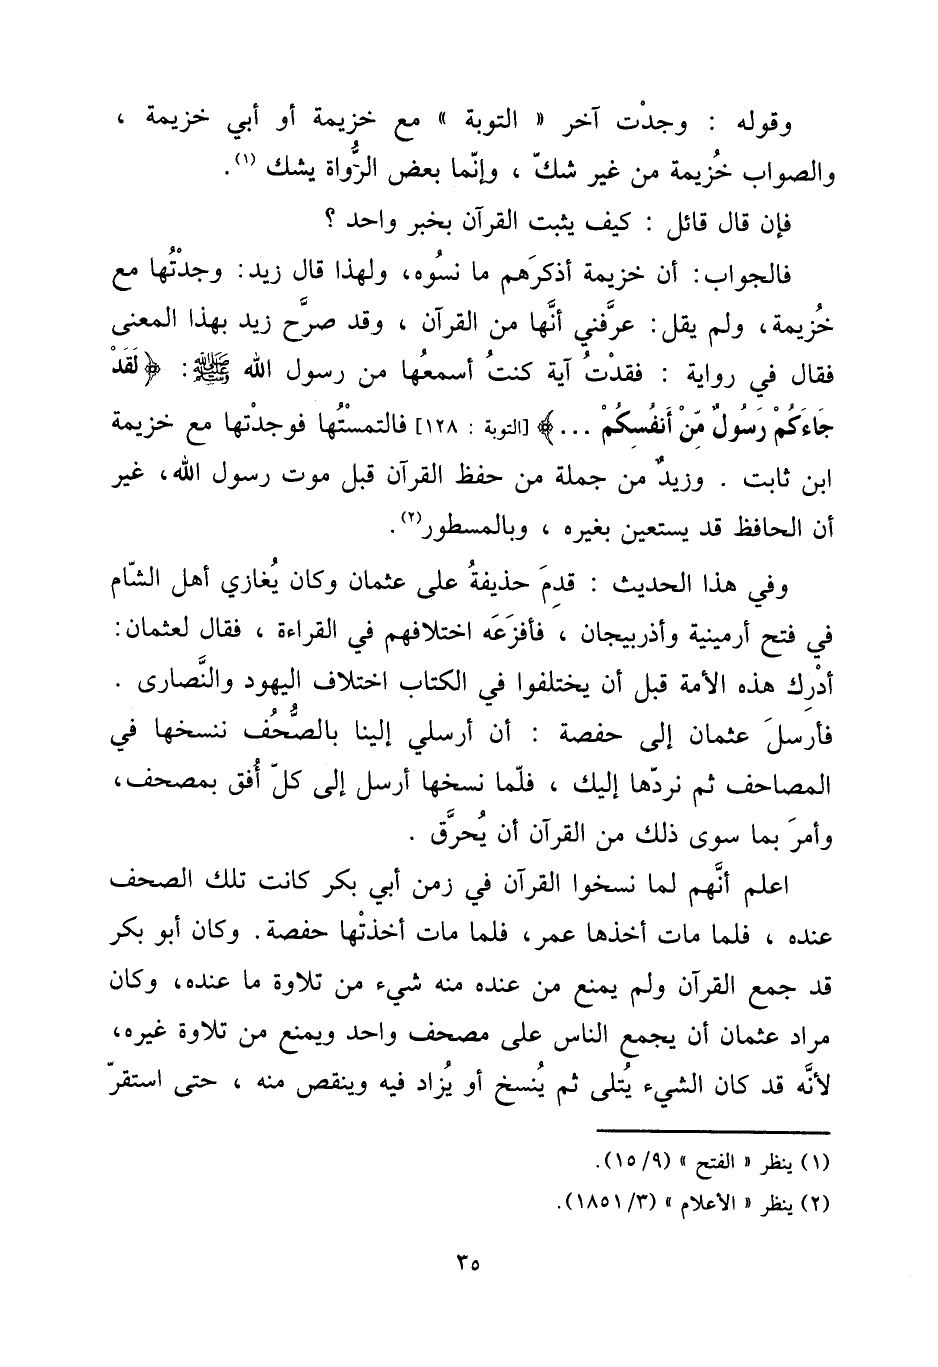 وقوله : وجدْت آخر « التوبة » مع خزيمة أو أبي خزيمة ،
والصواب خُزيمة من غير شكّ ، وإنّما بعض الرُّواة يشك (١).
فإن قال قائل : كيف يثبت القرآن بخبر واحد ؟
فالجواب: أن خزيمة أذكرَهم ما نسُوه، ولهذا قال زيد: وجدْتُها مع
خُزيمة، ولم يقل: عرَّفني أنَّها من القرآن ، وقد صرَّح زيد بهذا المعنى
فقال في رواية : فقدْتُ آية كنتُ أسمعُها من رسول الله ﷺ: ﴿لَقَدْ
جَاءَكُمْ رَسُولٌ مِّنْ أَنفُسِكُمْ ...﴾ [التوبة : ١٢٨] فالتمسْتُها فوجدْتها مع خزيمة
ابن ثابت . وزيدٌ من جملة من حفظ القرآن قبل موت رسول الله، غير
أن الحافظ قد يستعين بغيره ، وبالمسطور(٢).
وفي هذا الحديث : قدِمَ حذيفةُ على عثمان وكان يُغازي أهل الشّام
في فتح أرمينية وأذربيجان ، فأفزَعَه اختلافهم في القراءة ، فقال لعثمان:
أدْرِك هذه الأمة قبل أن يختلفوا في الكتاب اختلاف اليهود والنَّصارى .
فأرسلَ عثمان إلى حفصة : أن أرسلي إلينا بالصُّحُف ننسخها في
المصاحف ثم نردّها إليك ، فلّما نسخها أرسل إلى كلّ أُفق بمصحف،
وأمرَ بما سوى ذلك من القرآن أن يُحرَّق .
اعلم أنَّهم لما نسخوا القرآن في زمن أبي بكر كانت تلك الصحف
عنده ، فلما مات أخذها عمر، فلما مات أخذتْها حفصة. وكان أبو بكر
قد جمع القرآن ولم يمنع من عنده منه شيء من تلاوة ما عنده، وكان
مراد عثمان أن يجمع الناس على مصحف واحد ويمنع من تلاوة غيره،
لأنَّه قد كان الشيء يُتلى ثم يُنسخ أو يُزاد فيه وينقص منه ، حتى استقرّ
(١) ينظر « الفتح » (١٥/٩).
(٢) ينظر « الأعلام » (١٨٥١/٣).
٣٥